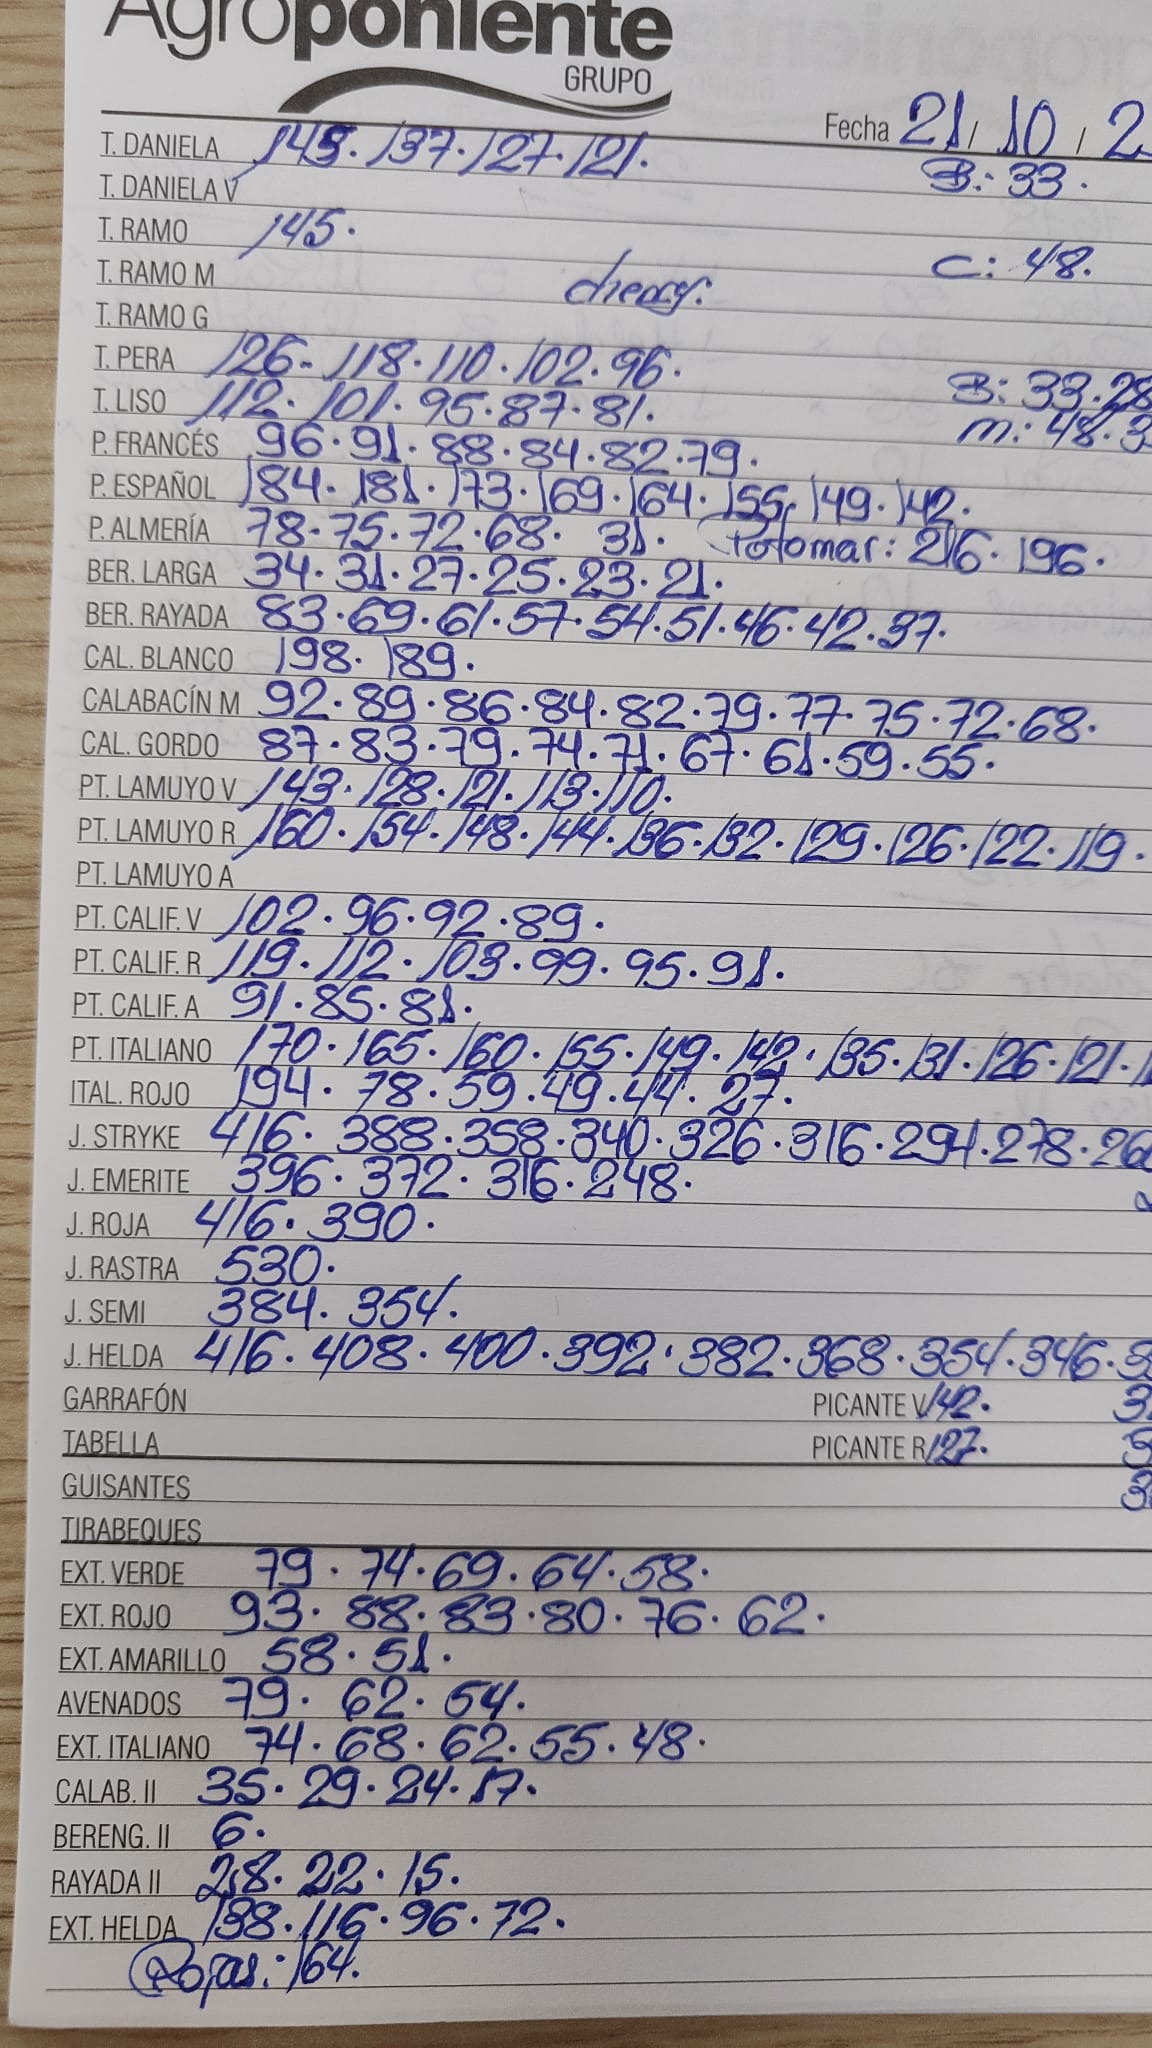 Agroponiente
GRUPO
Fecha 21/10/2
T. DANIELA 145. 137. 127. 121.
B: 33.
T. DANIELA V
T. RAMO 145.
C: 48.
T. RAMO M
cherry:
T. RAMO G
T. PERA 126. 118. 110. 102. 96.
B: 33. 28
T. LISO 112. 101. 95. 87. 81.
m: 48. 3
P. FRANCÉS 96. 91. 88. 84. 82. 79.
P. ESPAÑOL 184. 181. 173. 169. 164. 155. 149. 142.
P. ALMERÍA 78. 75. 72. 68. 31. Potomar: 216. 196.
BER. LARGA 34. 31. 27. 25. 23. 21.
BER. RAYADA 83. 69. 61. 57. 54. 51. 46. 42. 37.
CAL. BLANCO 198. 189.
CALABACÍN M 92. 89. 86. 84. 82. 79. 77. 75. 72. 68.
CAL. GORDO 87. 83. 79. 74. 71. 67. 61. 59. 55.
PT. LAMUYO V 143. 128. 121. 113. 110.
PT. LAMUYO R 160. 154. 148. 144. 136. 132. 129. 126. 122. 119.
PT. LAMUYO A
PT. CALIF. V 102. 96. 92. 89.
PT. CALIF. R 119. 112. 103. 99. 95. 91.
PT. CALIF. A 91. 85. 81.
PT. ITALIANO 170. 165. 160. 155. 149. 142. 135. 131. 126. 121. 1
ITAL. ROJO 194. 78. 59. 49. 44. 27.
J. STRYKE 416. 388. 358. 340. 326. 316. 294. 278. 26
J. EMERITE 396. 372. 316. 248.
J. ROJA 416. 390.
J. RASTRA 530.
J. SEMI 384. 354.
J. HELDA 416. 408. 400. 392. 382. 368. 354. 346. 3
GARRAFÓN PICANTE V 142. 3
TABELLA PICANTE R 127. 3
GUISANTES 3
TIRABEQUES
EXT. VERDE 79. 74. 69. 64. 58.
EXT. ROJO 93. 88. 83. 80. 76. 62.
EXT. AMARILLO 58. 51.
AVENADOS 79. 62. 54.
EXT. ITALIANO 74. 68. 62. 55. 48.
CALAB. II 35. 29. 24. 17.
BERENG. II 6.
RAYADA II 28. 22. 15.
EXT. HELDA 138. 116. 96. 72.
Rojas: 164.